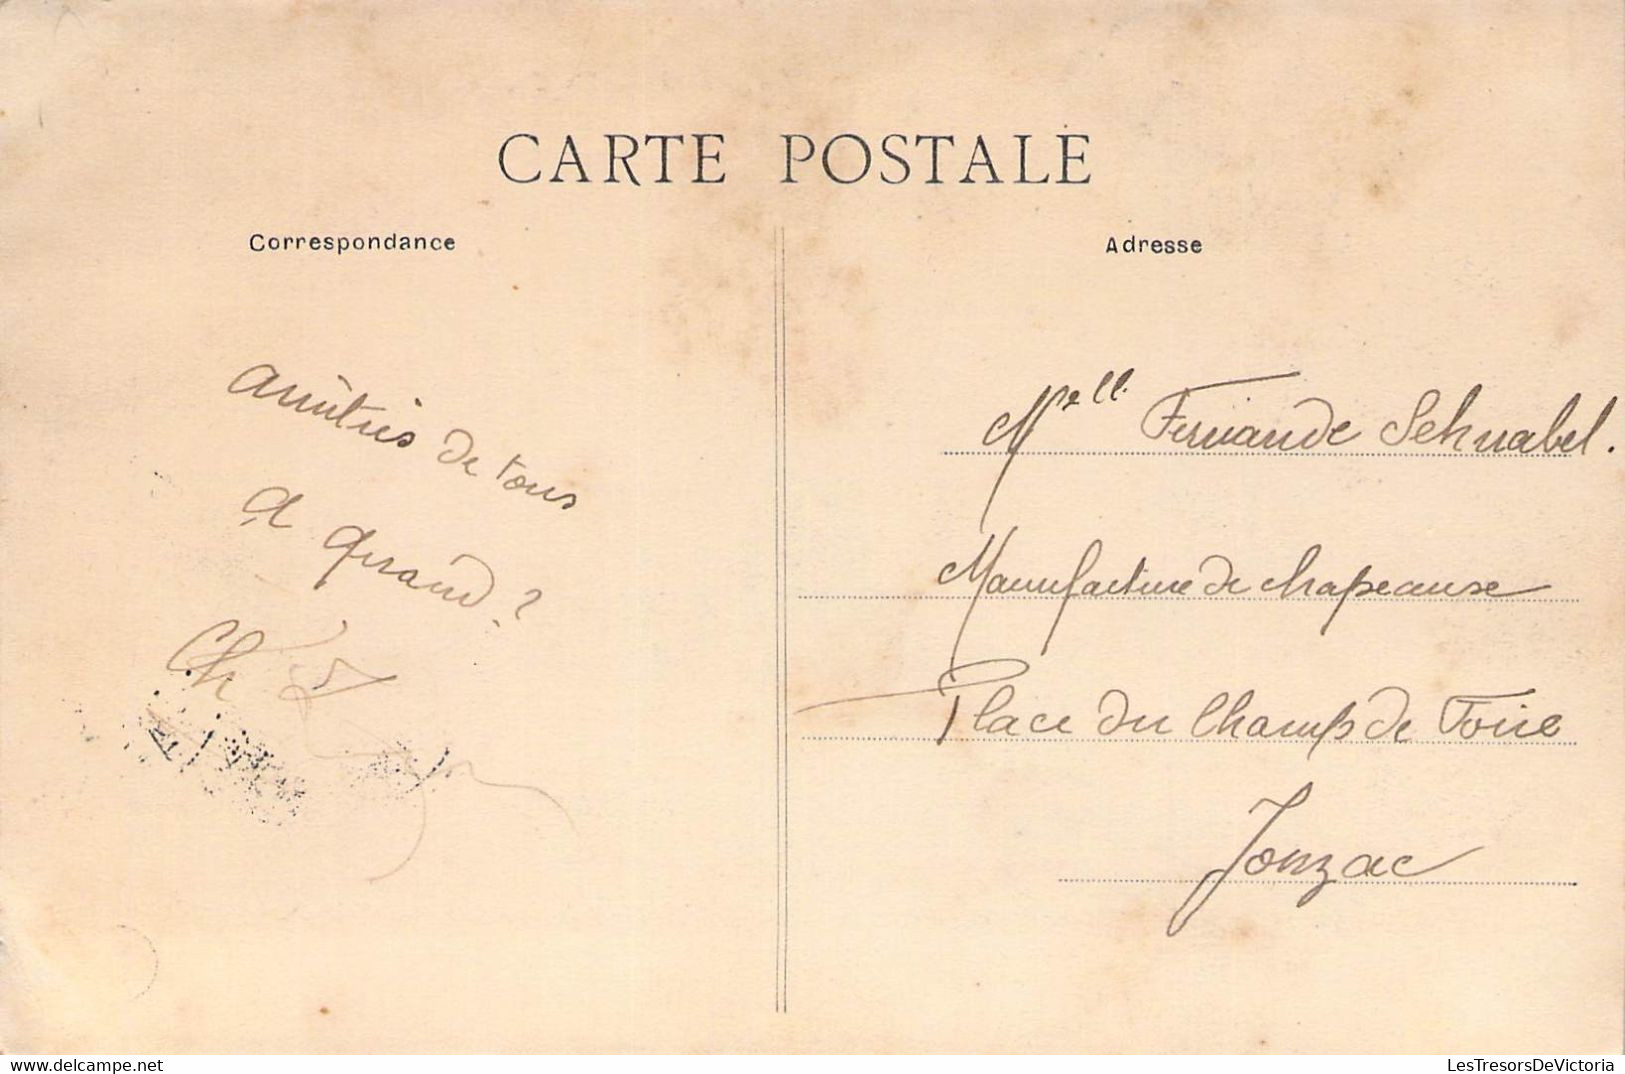 CARTE POSTALE
Correspondance
amitiés de tous
a quand ?
Ch
Adresse
Melle Fernande Schnabel.
Manufacture de chapeaux
Place du Champ de Foire
Jonzac
LesTresorsDeVictoria